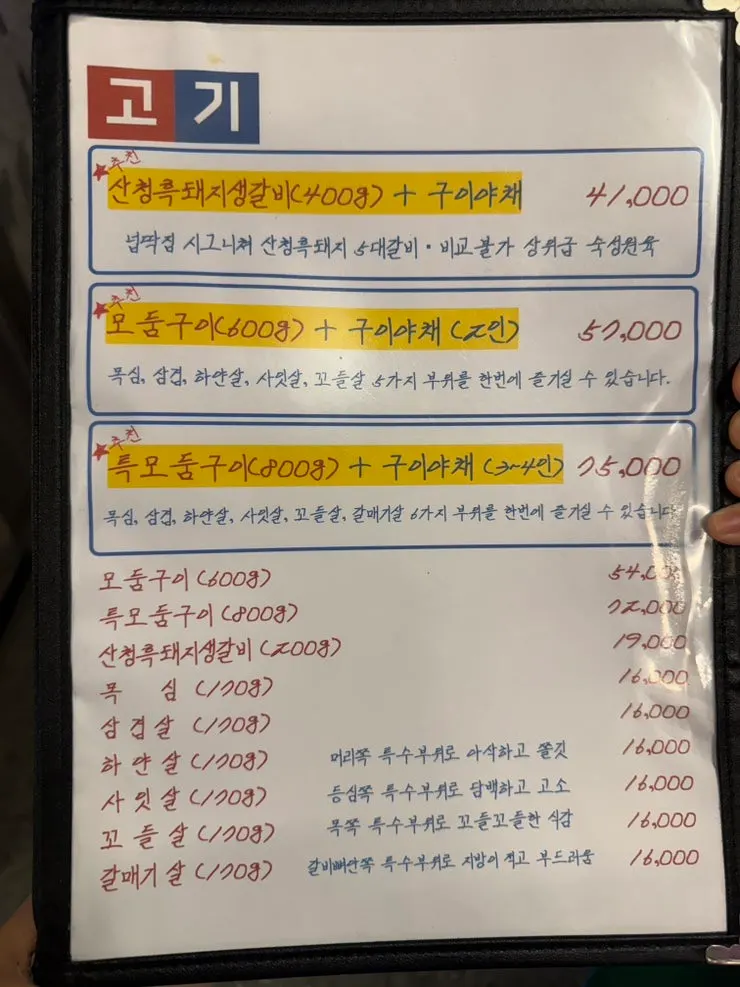 고기
추천
산청흑돼지생갈비(400g) + 구이야채 41,000
넙딱집 시그니처 산청흑돼지 5대갈비 · 비교불가 상위급 숙성원육
추천
모둠구이(600g) + 구이야채 (2인) 57,000
목심, 삼겹, 하얀살, 사잇살, 꼬들살 5가지 부위를 한번에 즐기실 수 있습니다.
추천
특모둠구이(800g) + 구이야채 (3~4인) 75,000
목심, 삼겹, 하얀살, 사잇살, 꼬들살, 갈매기살 6가지 부위를 한번에 즐기실 수 있습니다
모둠구이 (600g) 54,000
특모둠구이 (800g) 72,000
산청흑돼지생갈비 (200g) 19,000
목 심 (170g) 16,000
삼겹살 (170g) 16,000
하얀살 (170g) 머리쪽 특수부위로 아삭하고 쫄깃 16,000
사잇살 (170g) 등심쪽 특수부위로 담백하고 고소 16,000
꼬들살 (170g) 목쪽 특수부위로 꼬들꼬들한 식감 16,000
갈매기살 (170g) 갈비뼈안쪽 특수부위로 지방이 적고 부드러움 16,000